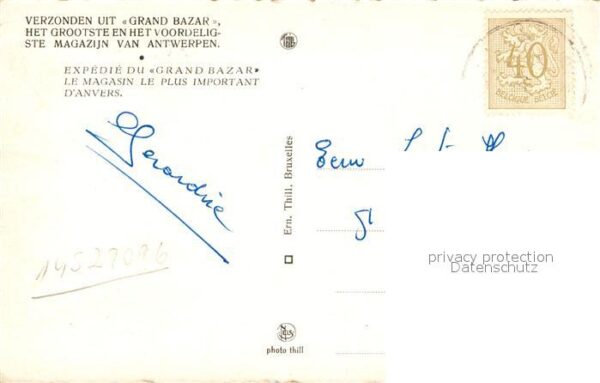 VERZONDEN UIT «GRAND BAZAR»,
HET GROOTSTE EN HET VOORDELIG-
STE MAGAZIJN VAN ANTWERPEN.
EXPÉDIÉ DU «GRAND BAZAR»
LE MAGASIN LE PLUS IMPORTANT
D'ANVERS.
Gerardine
14527096
Ern. Thill, Bruxelles
photo thill
40
BELGIQUE BELGIË
privacy protection
Datenschutz